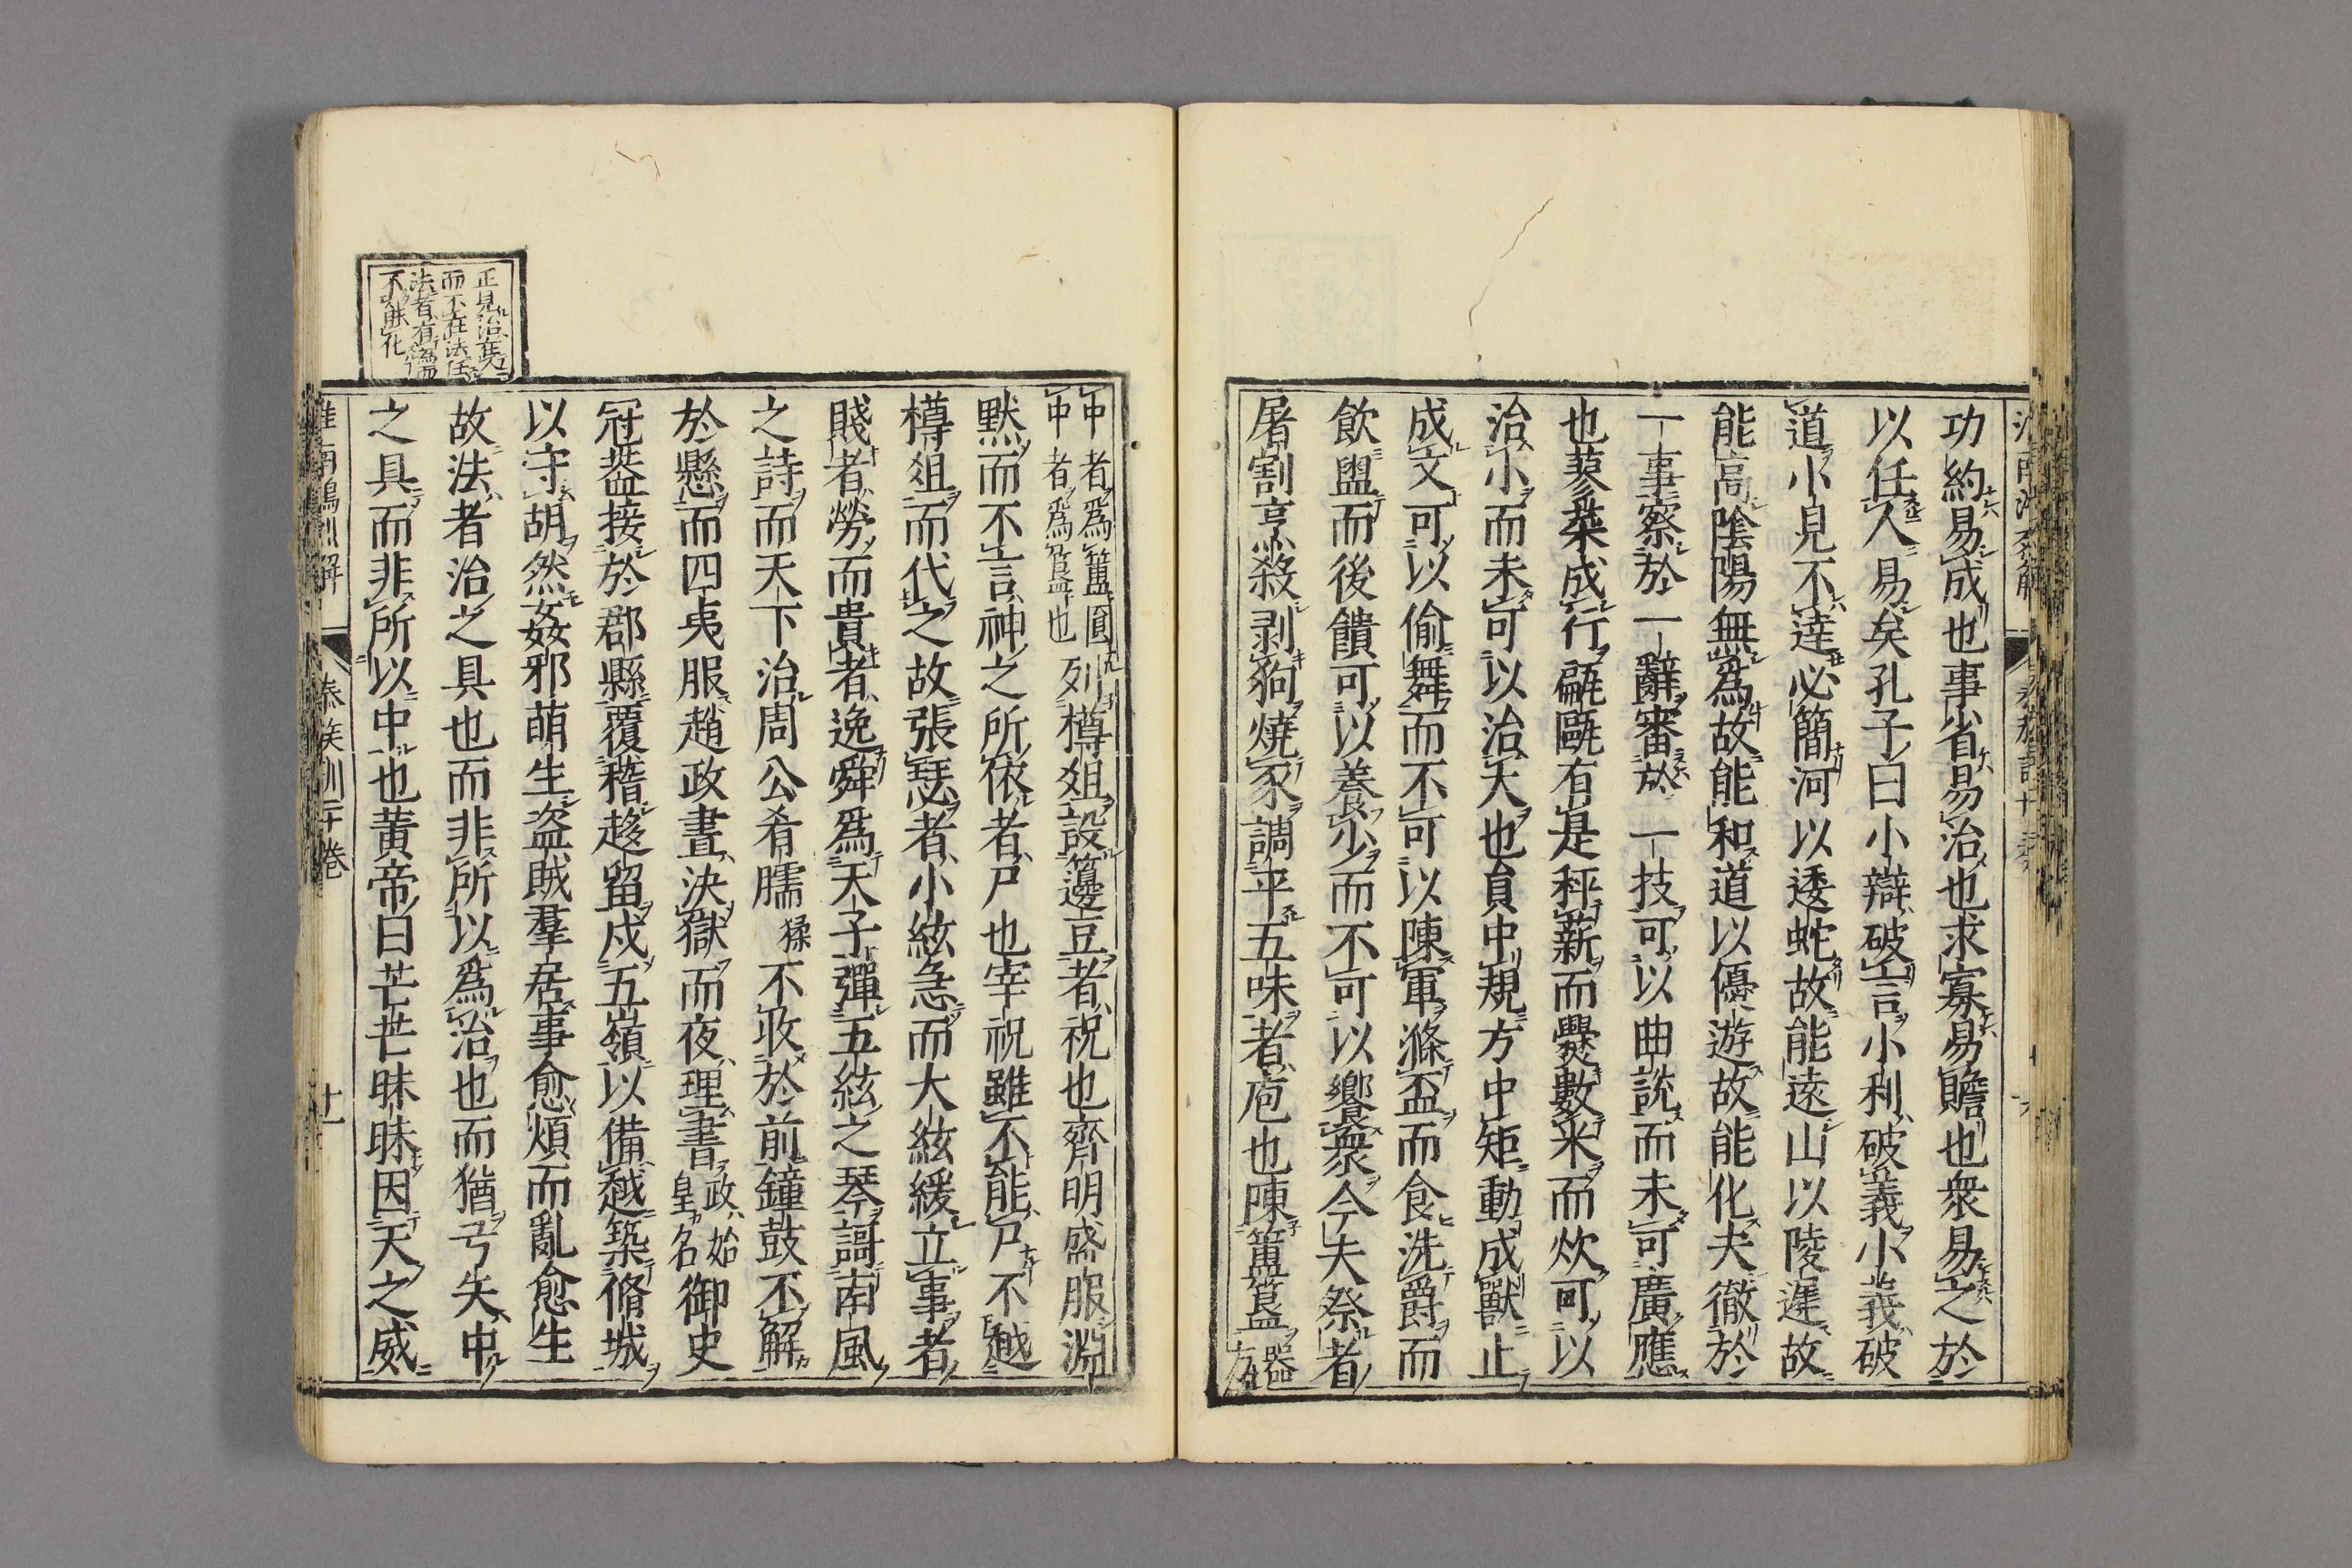 功約易成也事省易治也求寡易贍也衆易之於
以任人易矣孔子曰小辯破言小利破義小義破
道小見不達必簡河以逶蛇故能遠山以陵遲故
能高陰陽無爲故能和道以優遊故能化夫徹於
一事察於一辭審於一技可以曲說而未可廣應
也蓼菜成行甂甌有是秤薪而爨數米而炊可以
治小而未可以治大也員中規方中矩動成獸止
成文可以愉舞而不可以陳軍滌盃而食洗爵而
飲盥而後饋可以養少而不可以饗衆今夫祭者
屠割烹殺剥狗燒豕調平五味者庖也陳簠簋器方
中者爲簠圓中者爲簋也列樽俎設籩豆者祝也齊明盛服淵
默而不言神之所依者尸也宰祝雖不能尸不越
樽俎而代之故張瑟者小絃急而大絃緩立事者
賤者勞而貴者逸舜爲天子彈五絃之琴謌南風
之詩而天下治周公肴臑不收於前鐘鼓不解
於懸而四夷服趙政晝決獄而夜理書政始皇名御史
冠蓋接於郡縣覆稽趍留戍五嶺以備越築脩城
以守胡然姦邪萌生盗賊羣居事愈煩而亂愈生
故法者治之具也而非所以爲治也而猶弓矢中
之具而非所以中也黄帝曰芒芒昧昧因天之威
正見治在道
而不在法任
法者有爲而
不能化
泰族訓二十卷
十一